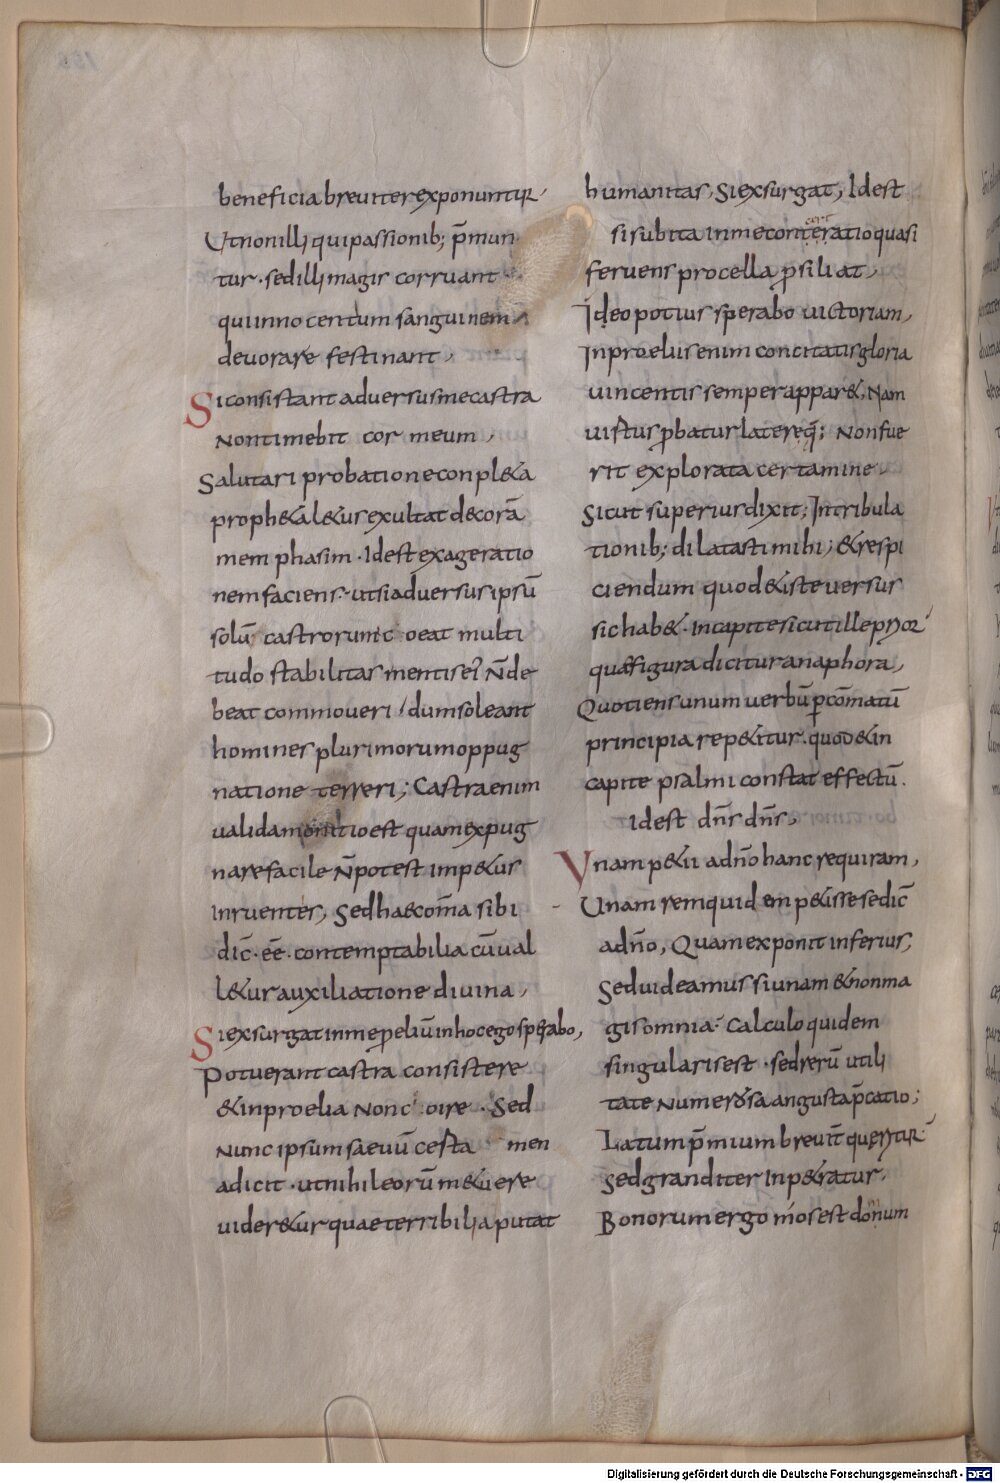 beneficia breviter exponuntur
Ut non illi qui passionib; p̄mun
tur · sed illi magis corruant
qui innocentum sanguinem
devorare festinant,
Si consistant adversus me castra
Non timebit cor meum,
Salutari probatione conpl&a
proph&al&us exultat decorā
mem phasim · Idest exageratio
nem faciens · ut si adversus ipsū
solū castrorum c oeat multi
tudo stabilitas mentis ei' N̄ de
beat commoveri / dum soleant
homines plurimorum oppug
natione terreri; Castra enim
valida monitio est quam expug
nare facile N̄ potest imp&us
inruentes, Sed haec om̄a sibi
dic̄ · eē · contemptabilia cū val
l&ur auxiliatione divina,
Si exsurgat in me p̄eliū in hoc ego sperabo,
Potuerant castra consistere
& in proelia Non c oire · Sed
Nunc ipsum saevū cesta men
adicit · ut nihil eorū m&uere
vider&ur quae terribilia putat
humanitas, Si exsurgat, Idest
si subita in me conteratio quasi
fervens procella p̱siliat,
Ideo potius sperabo victoriam,
In proeliis enim concitatis gloria
vincentis semper appar&, Nam
virtus p̱batur latereq̄; Non fue
rit explorata certamine
Sicut superius dixit; In tribula
tionib; dilatasti mihi; & respi
ciendum quod & iste versus
sic hab& · In capite sicut ille prior
quae figura dicitur anaphora,
Quotiens unum verbū p̱ com̄atū
principia rep&itur · quod & in
capite psalmi constat effectū ·
Idest dn̄s dn̄s,
Unam p&ii a dn̄o hanc requiram,
Unam rem quidem p&isse se dic̄
a dn̄o, Quam exponit inferius,
Sed videamus si unam & non ma
gis omnia · Calculo quidem
singularis est · sed rerū utili
tate Numerosa angusta p̄catio;
Latum p̄mium breviт̄ queritur
Sed granditer Inp&ratur,
Bonorum ergo mos est donum
Digitalisierung gefördert durch die Deutsche Forschungsgemeinschaft - DFG